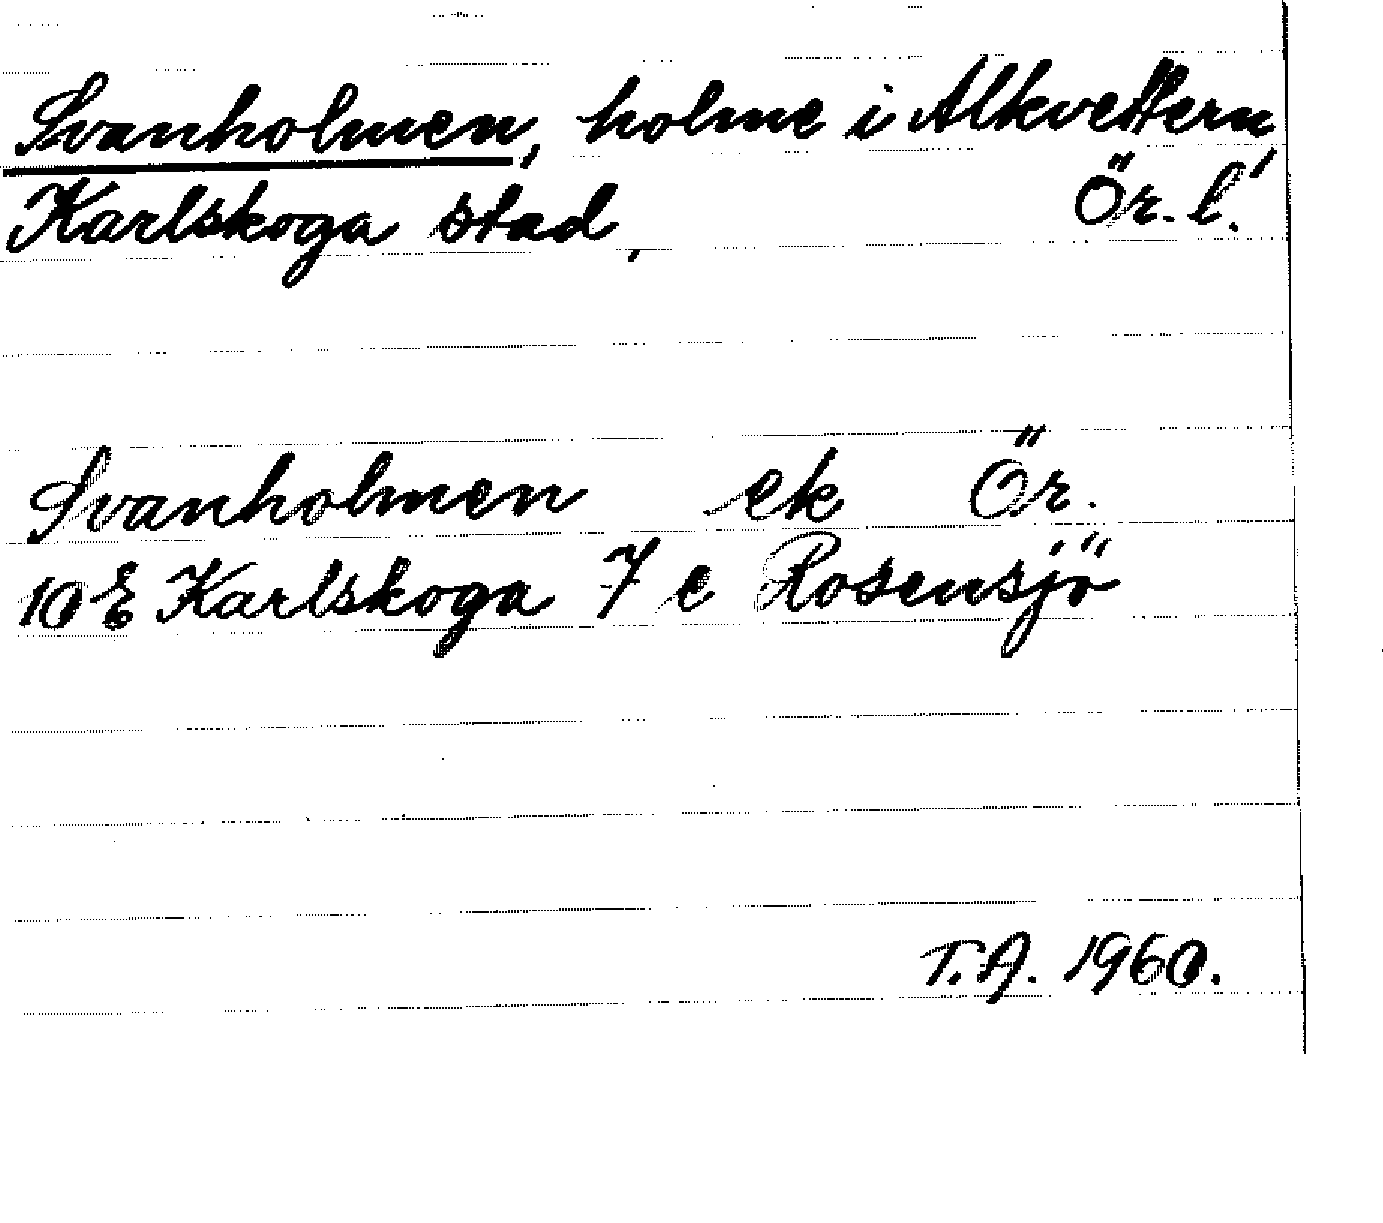 Svanholmen, holme i Alkvettern,
Karlskoga stad, Ör. l.
Svanholmen ek Ör.
10 E Karlskoga 7 e Rosensjö
T.A. 1960.